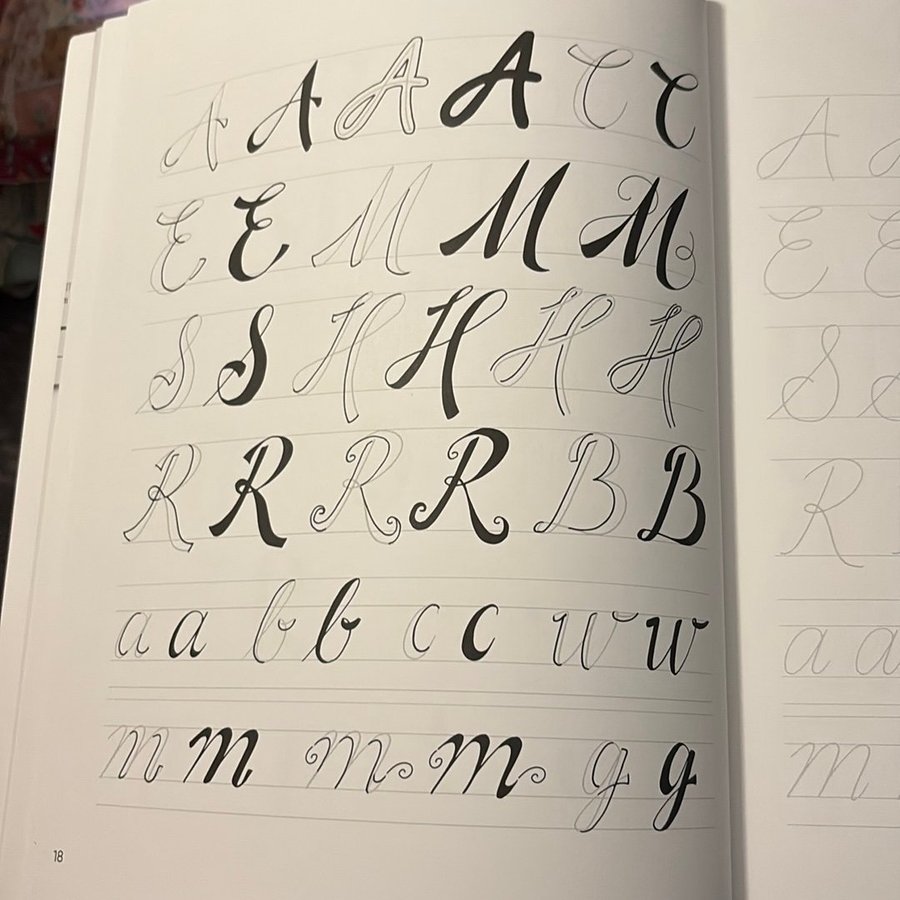 A A A A C C
E E M M M
S S H H H H
R R R R B B
a a b b c c w w
m m m m g g
18
A A
E E
S S
R
a a
m